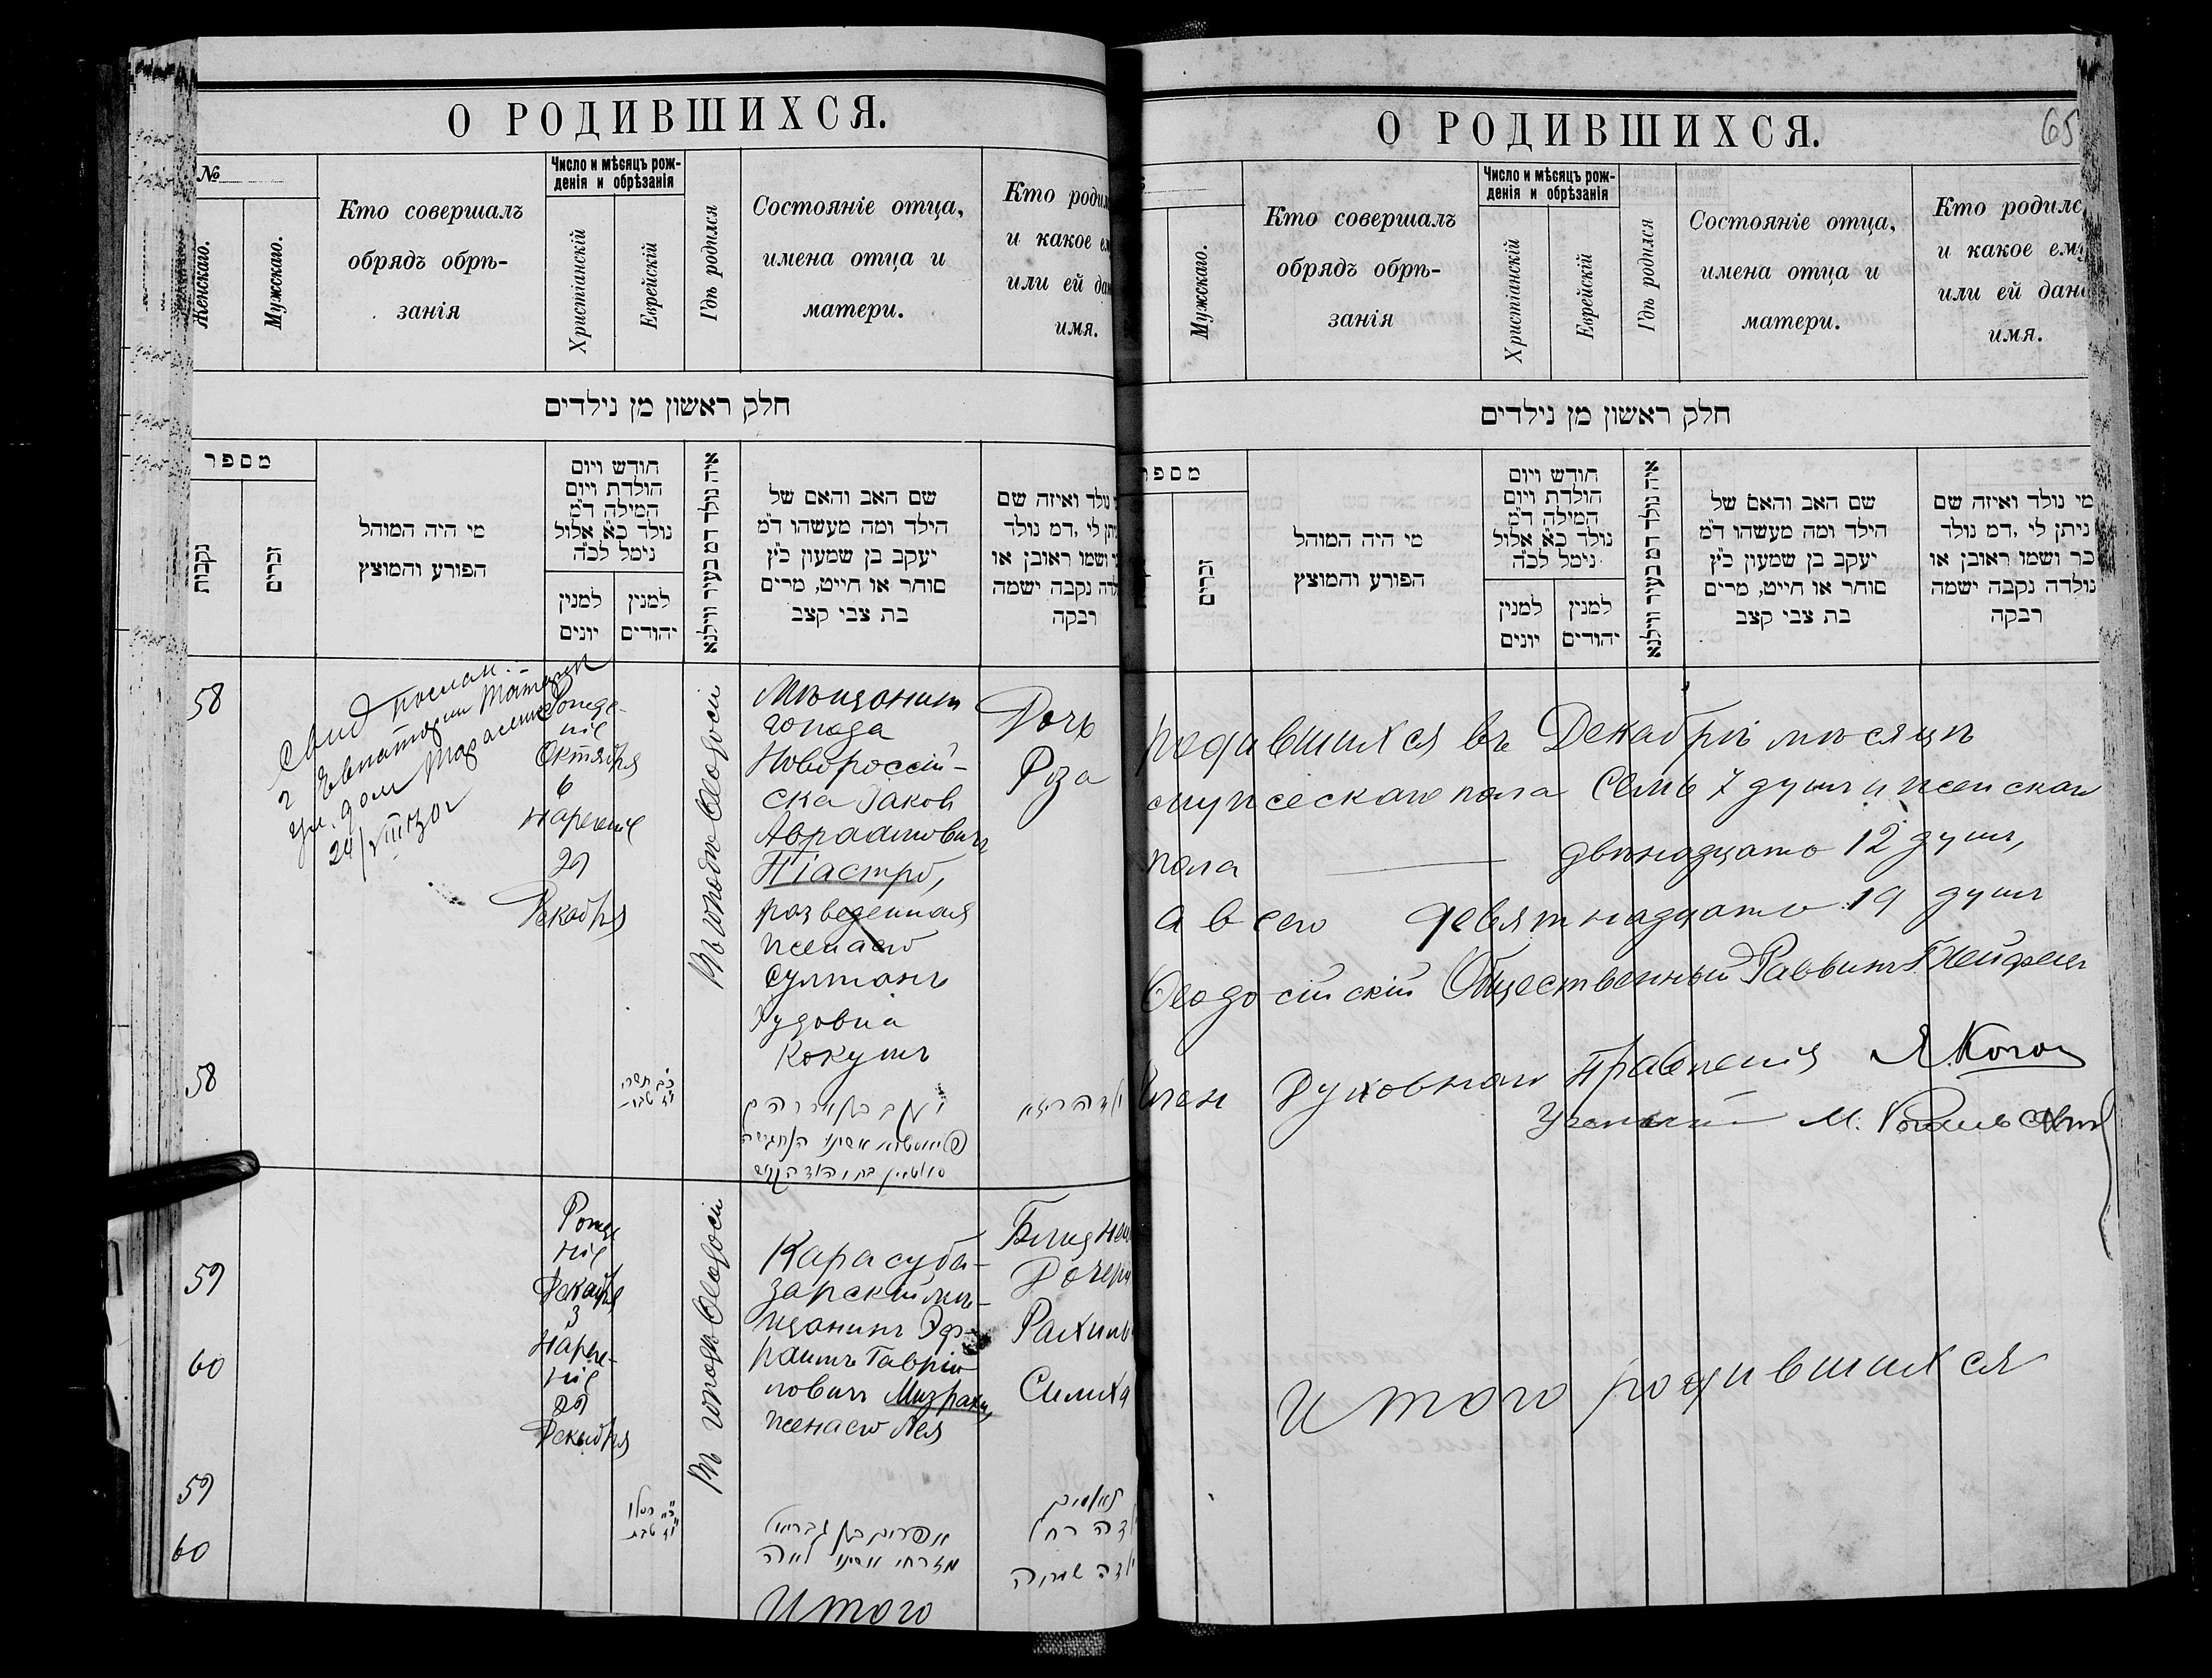 О РОДИВШИХСЯ.
№
Женскаго.
Мужскаго.
Кто совершалъ
обрядъ обрѣ-
занія
Число и мѣсяцъ рож-
денія и обрѣзанія
Христіанскій
Еврейскій
Гдѣ родился
Состояніе отца,
имена отца и
матери.
Кто
и какое
или ей
имя.
חלק ראשון מן נילדים
מספר
נקבות
זכרים
מי היה המוהל
הפורע והמוצץ
חודש ויום
הולדת ויום
המילה ד"מ
נולד כ"א אלול
נימל לכ"ה
למנין
יונים
למנין
יהודים
איה נולד דמ בעיר ווילנא
שם האב והאם של
הילד ומה מעשהו ד"מ
יעקב בן שמעון כ"ץ
סוחר או חייט, מרים
בת צבי קצב
נולד ואיזה שם
לי ,דמ נולד
ושמו ראובן או
נקבה ישמה
רבקה
58
Свид послан.
г Евпатории
ул. дом
24/VIII
Рожде-
ніе
Октября
6
Нареченіе
29
Декабря
Въ городѣ Ѳеодосіи
Мѣщанинъ
города
Новороссій-
ска Іаковъ
Авраамовичъ
Піастро,
разведенная
жена его
Султанъ
Іудовна
Кокушъ
Дочь
Роза
58
59
60
Рожде
ніе
Декабря
3
Нарече-
ніе
29
Декабря
Въ городѣ Ѳеодосіи
Карасуба-
зарскій мѣ-
щанинъ Эф-
раимъ Гавріи
ловичъ Мизрахи,
жена его Лея
Дочери
Рахиль
Симха
59
60
אפרים בן גבריאל
מזרחי אשתו לאה
תאומים
ילדה רחל
ילדה שמחה
Итого
О РОДИВШИХСЯ.
65
Мужскаго.
Кто совершалъ
обрядъ обрѣ-
занія
Число и мѣсяцъ рож-
денія и обрѣзанія
Христіанскій
Еврейскій
Гдѣ родился
Состояніе отца,
имена отца и
матери.
Кто
и какое
или ей
имя.
חלק ראשון מן נילדים
מספר
זכרים
מי היה המוהל
הפורע והמוצץ
חודש ויום
הולדת ויום
המילה ד"מ
נולד כ"א אלול
נימל לכ"ה
למנין
יונים
למנין
יהודים
איה נולד דמ בעיר ווילנא
שם האב והאם של
הילד ומה מעשהו ד"מ
יעקב בן שמעון כ"ץ
סוחר או חייט, מרים
בת צבי קצב
מי נולד ואיזה שם
ניתן לי ,דמ נולד
כר ושמו ראובן או
נולדה נקבה ישמה
רבקה
родившихся въ Декабрѣ мѣсяцѣ
мужескаго пола семь 7 душъ и женскаго
пола — двѣнадцать 12 душъ,
а всего девятнадцать 19 душъ
Ѳеодосійскій Общественный Раввинъ
Членъ Духовнаго Правленія Я. Коган
Ученый М.
Итого родившихся